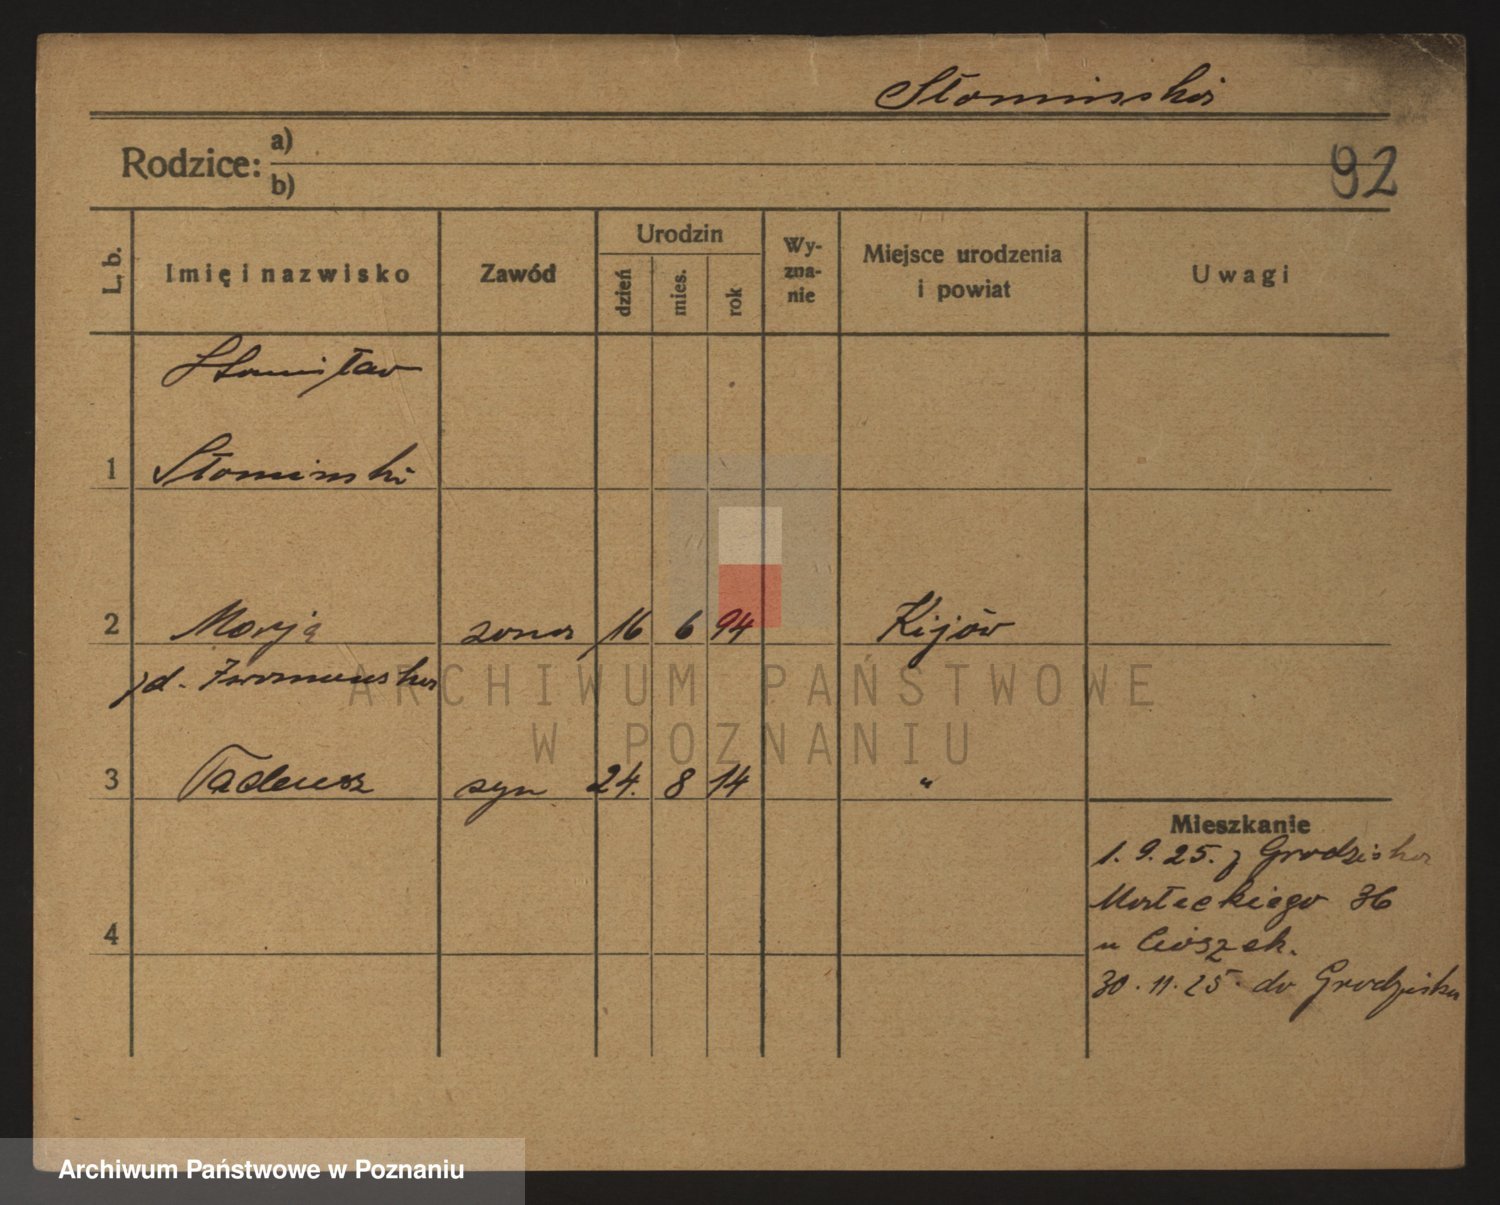 Słominski
Rodzice: a)
b)
92
L. b.
Imię i nazwisko
Zawód
Urodzin
dzień
mies.
rok
Wy-
zna-
nie
Miejsce urodzenia
i powiat
Uwagi
Stanisław
1 Słominski
2 Marja żona 16 6 94 Kijów
3 Tadeusz syn 24. 8 14 "
Mieszkanie
1. 9. 25. z Grodziska
36
u
30. 11. 25. do Grodziska
4
ARCHIWUM PAŃSTWOWE
W POZNANIU
Archiwum Państwowe w Poznaniu